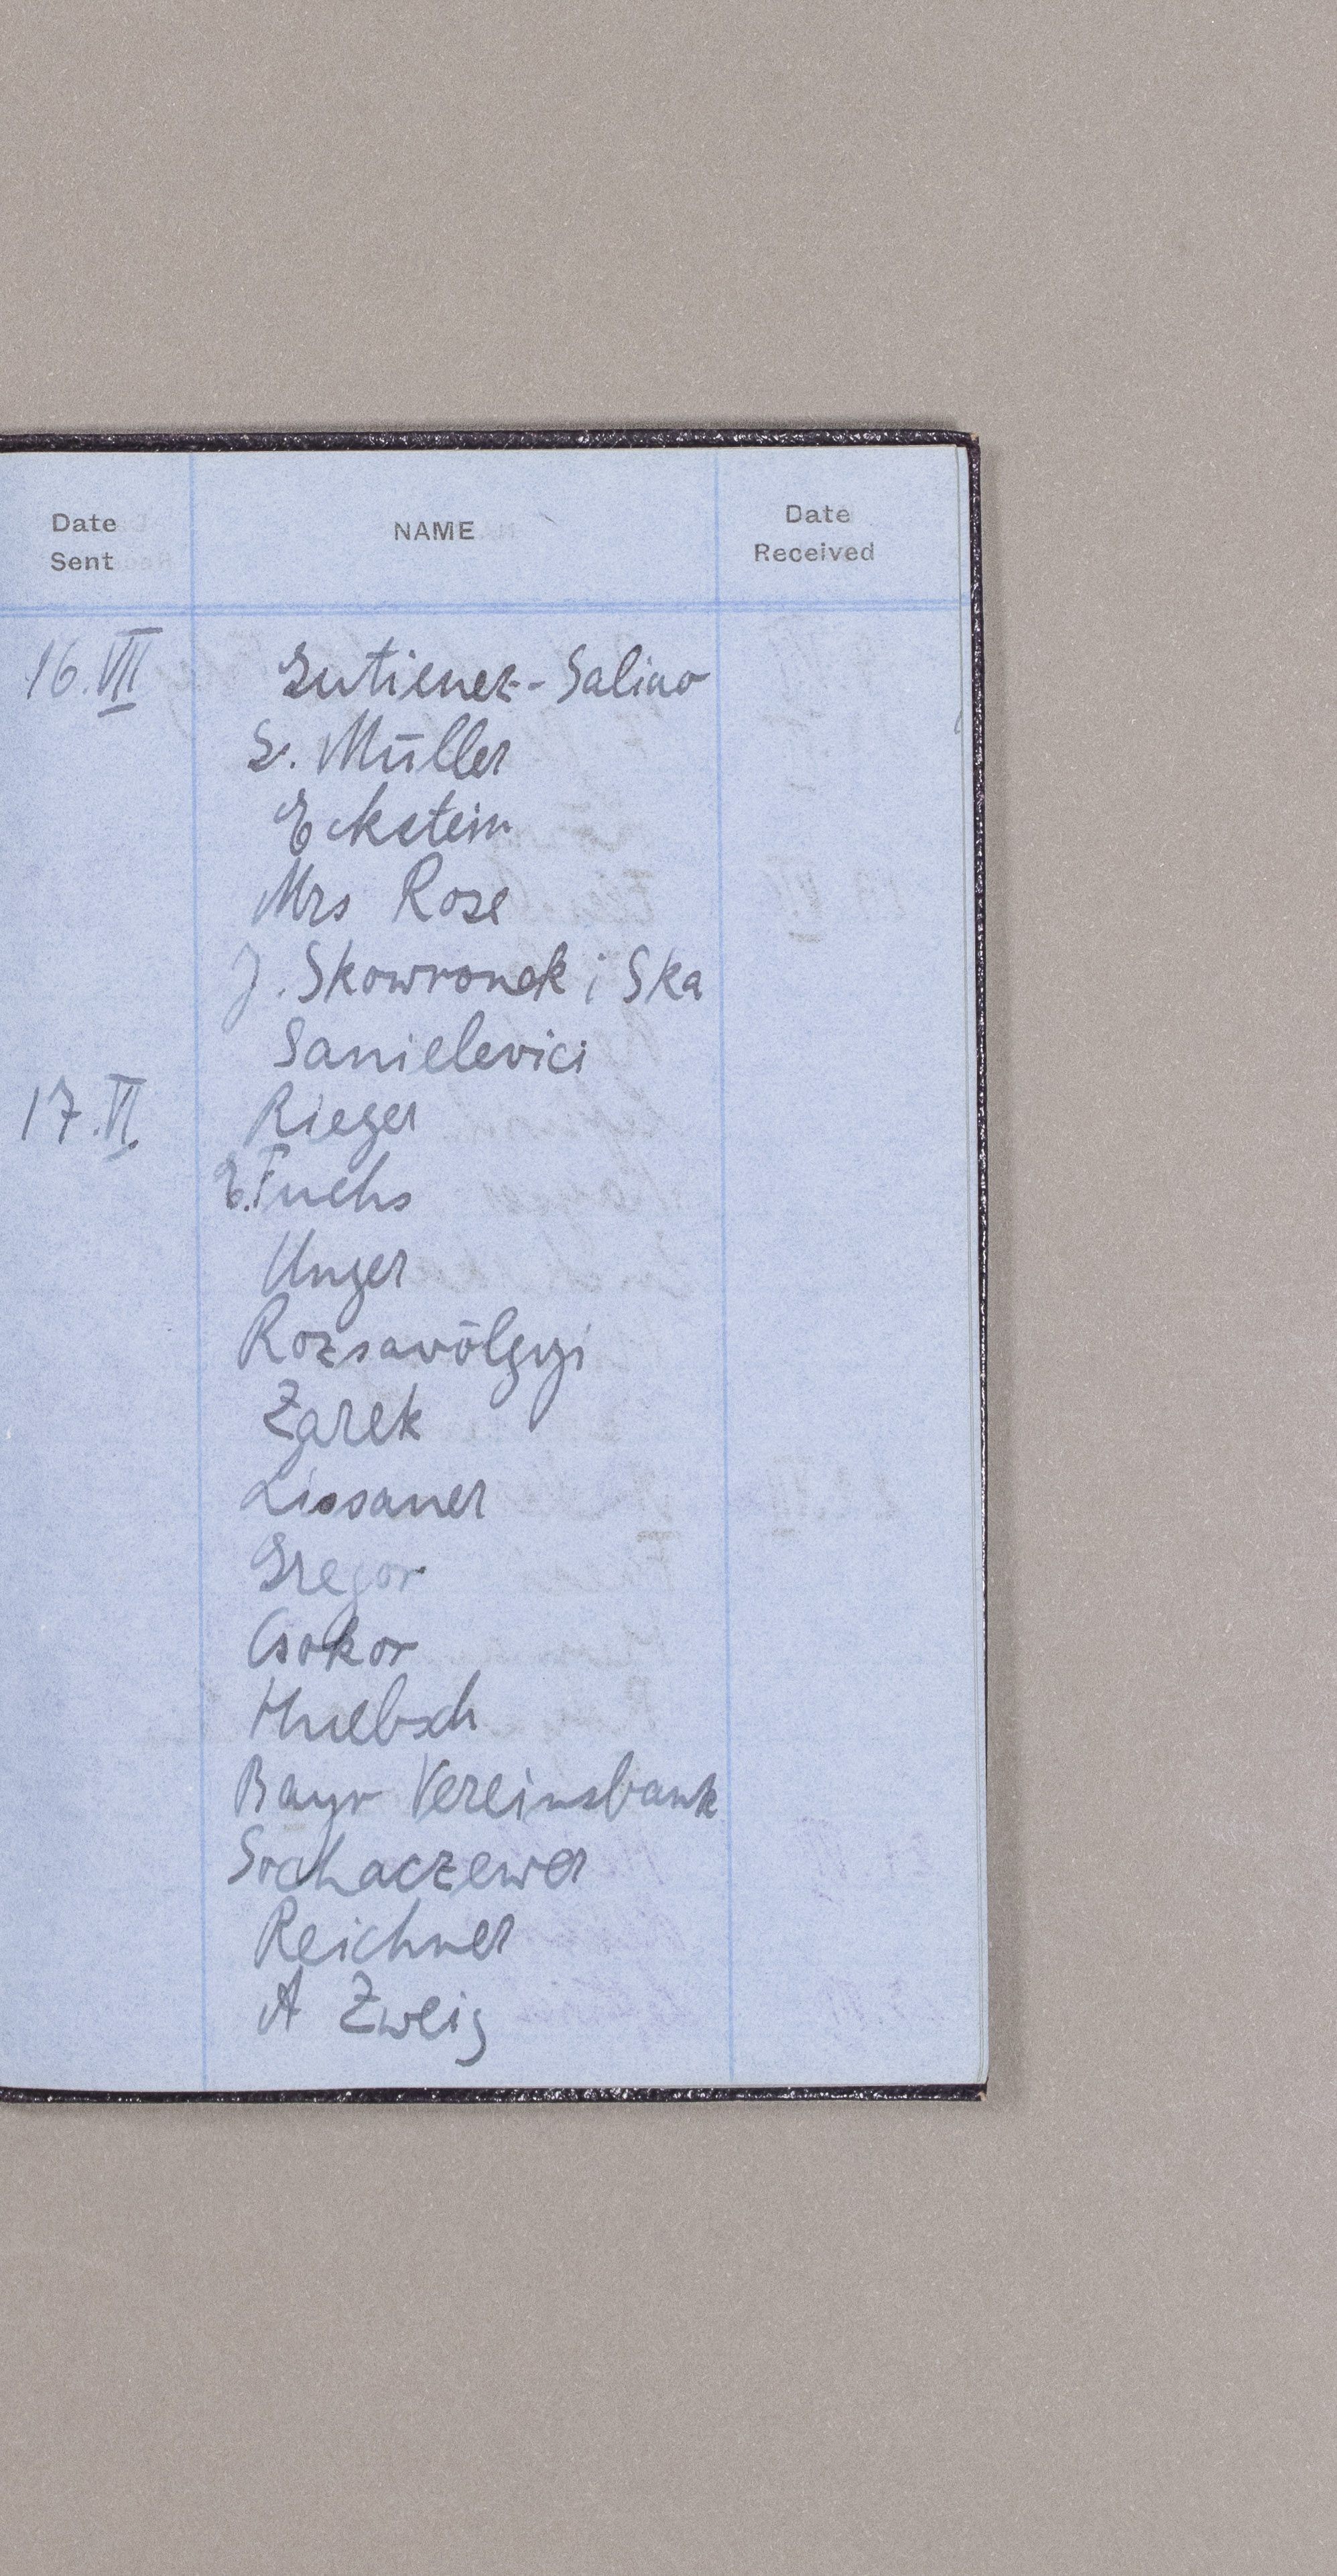 Date Sent NAME Date Received
16.VII Gutienez-Salino
S. Müller
Eckstein
Mrs Rose
J. Skowronek i Ska
Sanielevici
17.VI. Rieger
E. Fuchs
Unger
Rozsavölgyi
Zarek
Lissauer
Gregor
Csokor
Huebsch
Bayr Vereinsbank
Sochaczewer
Reichner
A Zweig